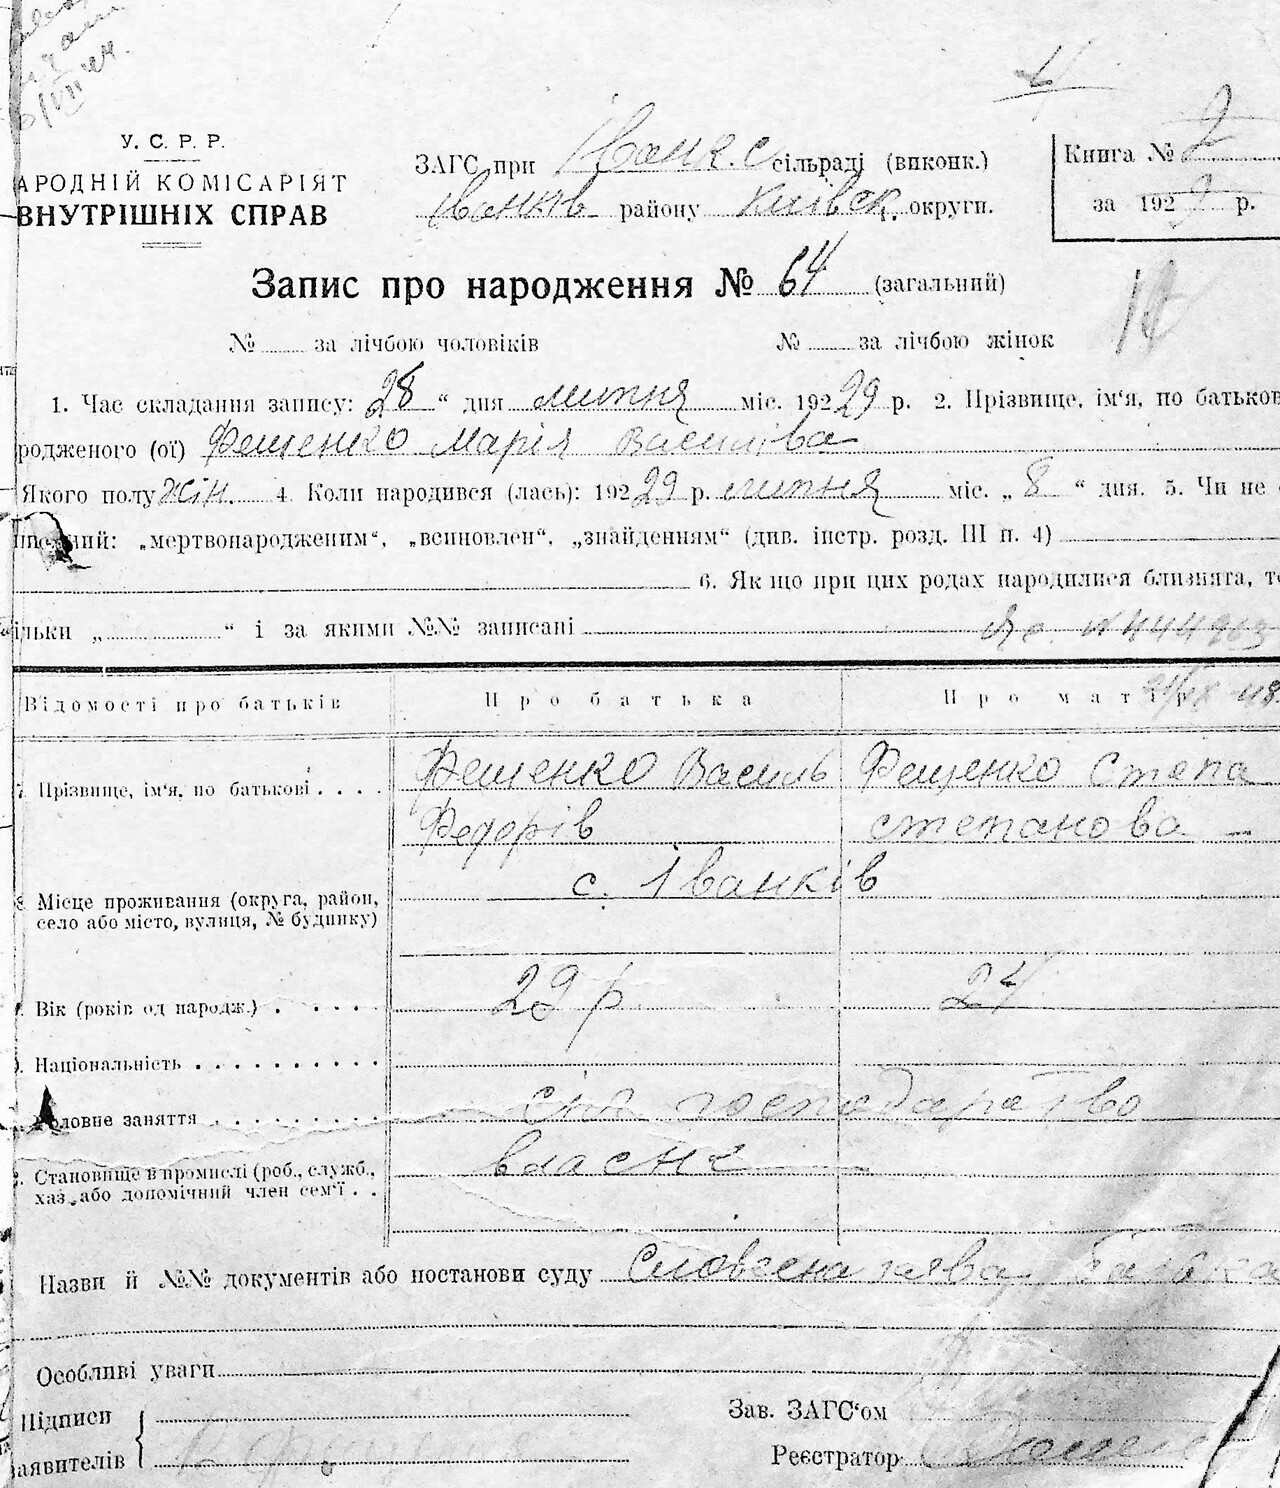 У. С. Р. Р.
АРОДНІЙ КОМІСАРІЯТ
ВНУТРІШНІХ СПРАВ
ЗАГС при Іванк. с сільраді (виконк.)
Іванків району Київск. округи.
Книга № 2
за 1929 р.
Запис про народження № 64 (загальний)
№ за лічбою чоловіків № за лічбою жінок
1. Час складання запису: 28 " дня липня міс. 192 29 р. 2. Прізвище, ім'я, по батькові
родженого (ої) Фещенко Марія Василіва
Якого полу жін. 4. Коли народився (лась): 192 29 р. липня міс. „ 8 " дня. 5. Чи не є
„мертвонародженим", „всиновлен", „знайденням" (див. інстр. розд. III п. 4)
6. Як що при цих родах народилися близнята, то
ільки „ " і за якими №№ записані
Відомості про батьків Про батька Про матір
7. Прізвище, ім'я, по батькові Фещенко Василь Фещенко Степа
Федорів степанова
8. Місце проживання (округа, район, село або місто, вулиця, № будинку) с. Іванків
Вік (років од народж.) 29 р 24
Національність
Головне заняття сіл господарство
Становище в промислі (роб., служб., хаз. або допомічний член сем'ї власне
Назви й №№ документів або постанови суду Словесна заява батька
Особливі уваги
Підписи
заявителів
Зав. ЗАГС'ом
Реєстратор